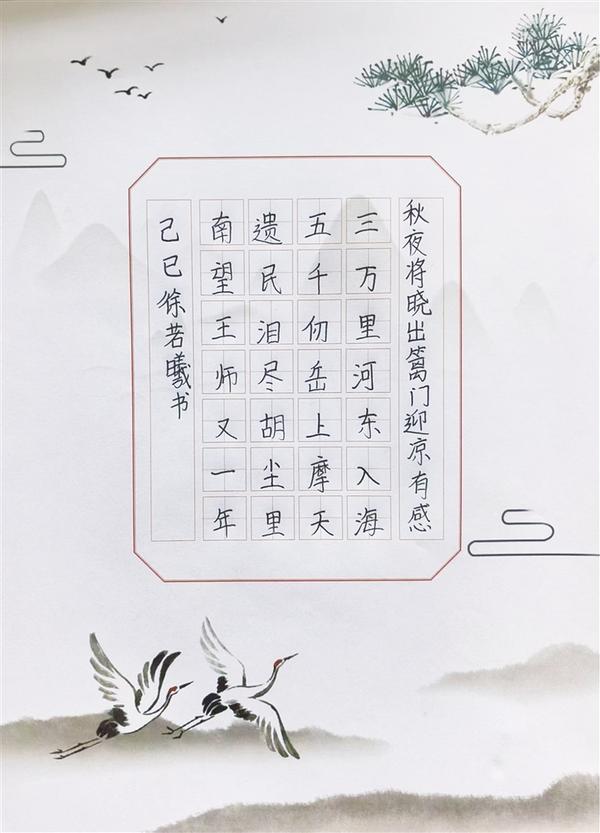 秋夜将晓出篱门迎凉有感
三万里河东入海
五千仞岳上摩天
遗民泪尽胡尘里
南望王师又一年
己巳徐若曦书